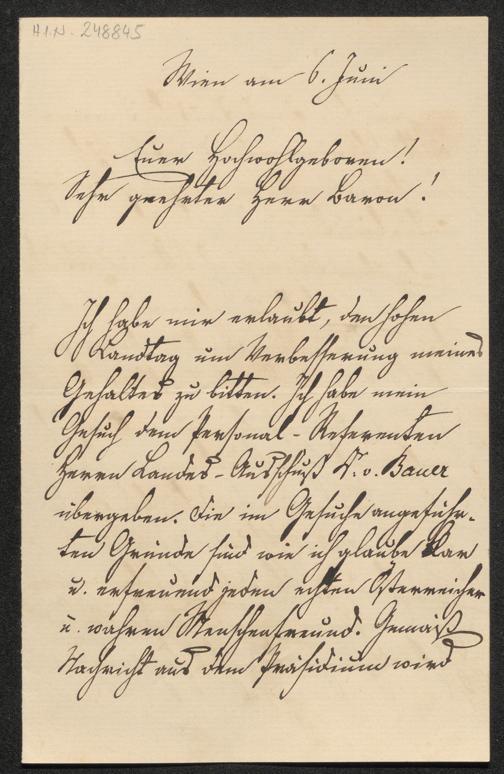 H.I.N. 248845
Wien am 6. Juni
Euer Hochwohlgeboren!
Sehr geehrter Herr Baron!
Ich habe mir erlaubt, den hohen
Landtag um Verbesserung meines
Gehaltes zu bitten. Ich habe mein
Gesuch dem Personal-Referenten
Herrn Landes-Ausschuß V. v. Bauer
übergeben. Die im Gesuche angeführ-
ten Gründe sind wie ich glaube klar
u. erfreuend jeden echten Österreicher
u. wahren Menschenfreund. Gemäß
Nachricht aus dem Präsidium wird